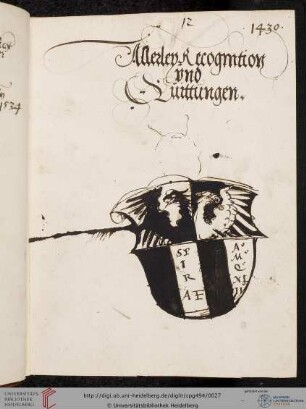 12
1430.
Allerley Recognition
vnd
Quittungen.
1534
SP
I
R
AE
A.
M.
http://digi.ub.uni-heidelberg.de/diglit/cpg494/0027
© Universitätsbibliothek Heidelberg
UNIVERSITÄTS-
BIBLIOTHEK
HEIDELBERG